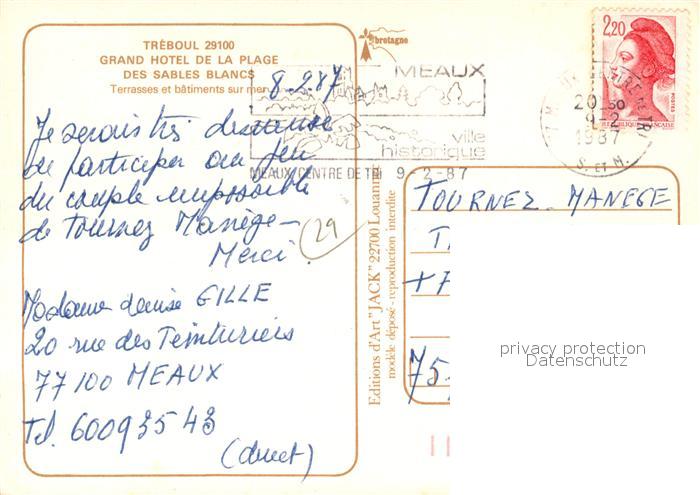 TRÉBOUL 29100
GRAND HOTEL DE LA PLAGE
DES SABLES BLANCS
Terrasses et bâtiments sur mer
8-2.87
Je serais très désireuse
de participer au jeu
du couple impossible
de Tournez Manège-
Merci.
29
Madame denise GILLE
20 rue des Teinturiers
77100 MEAUX
Tel. 60093543
(direct)
bretagne
MEAUX
ville
historique
MEAUX CENTRE DE TRI 9-2-87
2,20
POSTES
REPUBLIQUE FRANÇAISE
20H30
9-2
1987
S. ET M.
Editions d'Art "JACK" 22700 Louannec
modèle déposé - reproduction interdite
TOURNEZ MANEGE
75
privacy protection
Datenschutz